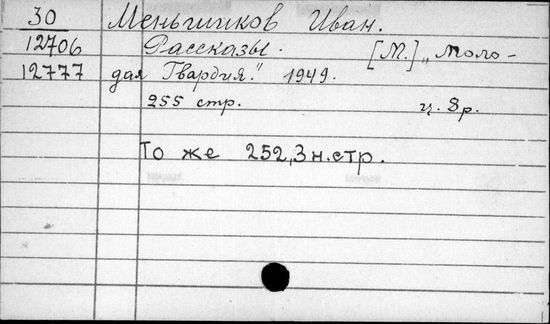 30 Меньшиков Иван.
12706 Рассказы. [М.] „Моло-
12777 дая Гвардия." 1949.
255 стр. ц. 8р.
То же 252,3н.стр.